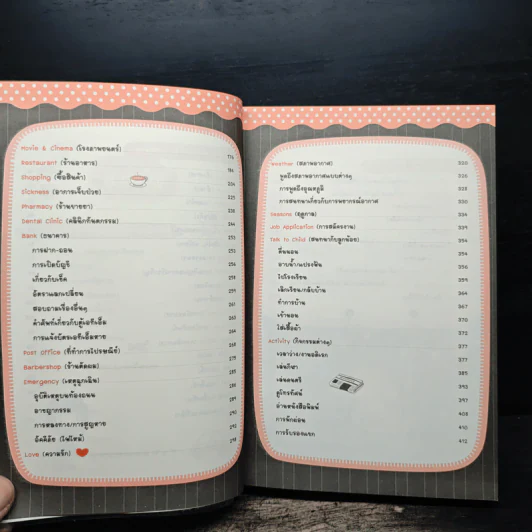 Movie & Cinema (โรงภาพยนตร์) 174
Restaurant (ร้านอาหาร) 184
Shopping (ซื้อสินค้า) 206
Sickness (อาการเจ็บป่วย) 225
Pharmacy (ร้านขายยา)
Dental Clinic (คลินิกทันตกรรม) 244
Bank (ธนาคาร) 251
การฝาก-ถอน 251
การเปิดบัญชี
เกี่ยวกับเช็ค
อัตราแลกเปลี่ยน 259
สอบถามเรื่องอื่นๆ 261
คำศัพท์เกี่ยวกับตู้เอทีเอ็ม
การแจ้งบัตรเอทีเอ็มหาย
Post Office (ที่ทำการไปรษณีย์) 268
Barbershop (ร้านตัดผม) 275
Emergency (เหตุฉุกเฉิน) 285
อุบัติเหตุบนท้องถนน 288
อาชญากรรม 290
การหลงทาง/การสูญหาย 292
อัคคีภัย (ไฟไหม้)
Love (ความรัก) 298
Weather (สภาพอากาศ) 320
พูดถึงสภาพอากาศแบบต่างๆ 326
การพูดถึงอุณหภูมิ 328
การสนทนาเกี่ยวกับการพยากรณ์อากาศ 330
Seasons (ฤดูกาล) 334
Job Application (การสมัครงาน) 339
Talk to Child (สนทนากับลูกน้อย) 354
ตื่นนอน 354
อาบน้ำ/แปรงฟัน 356
ไปโรงเรียน 359
เลิกเรียน/กลับบ้าน 364
ทำการบ้าน 367
เข้านอน 370
ใส่เสื้อผ้า 372
Activity (กิจกรรมต่างๆ) 377
เวลาว่าง/งานอดิเรก 377
เล่นกีฬา 385
เล่นดนตรี 392
ดูโทรทัศน์ 397
อ่านหนังสือพิมพ์ 403
การพักผ่อน 410
การรับรองแขก 412